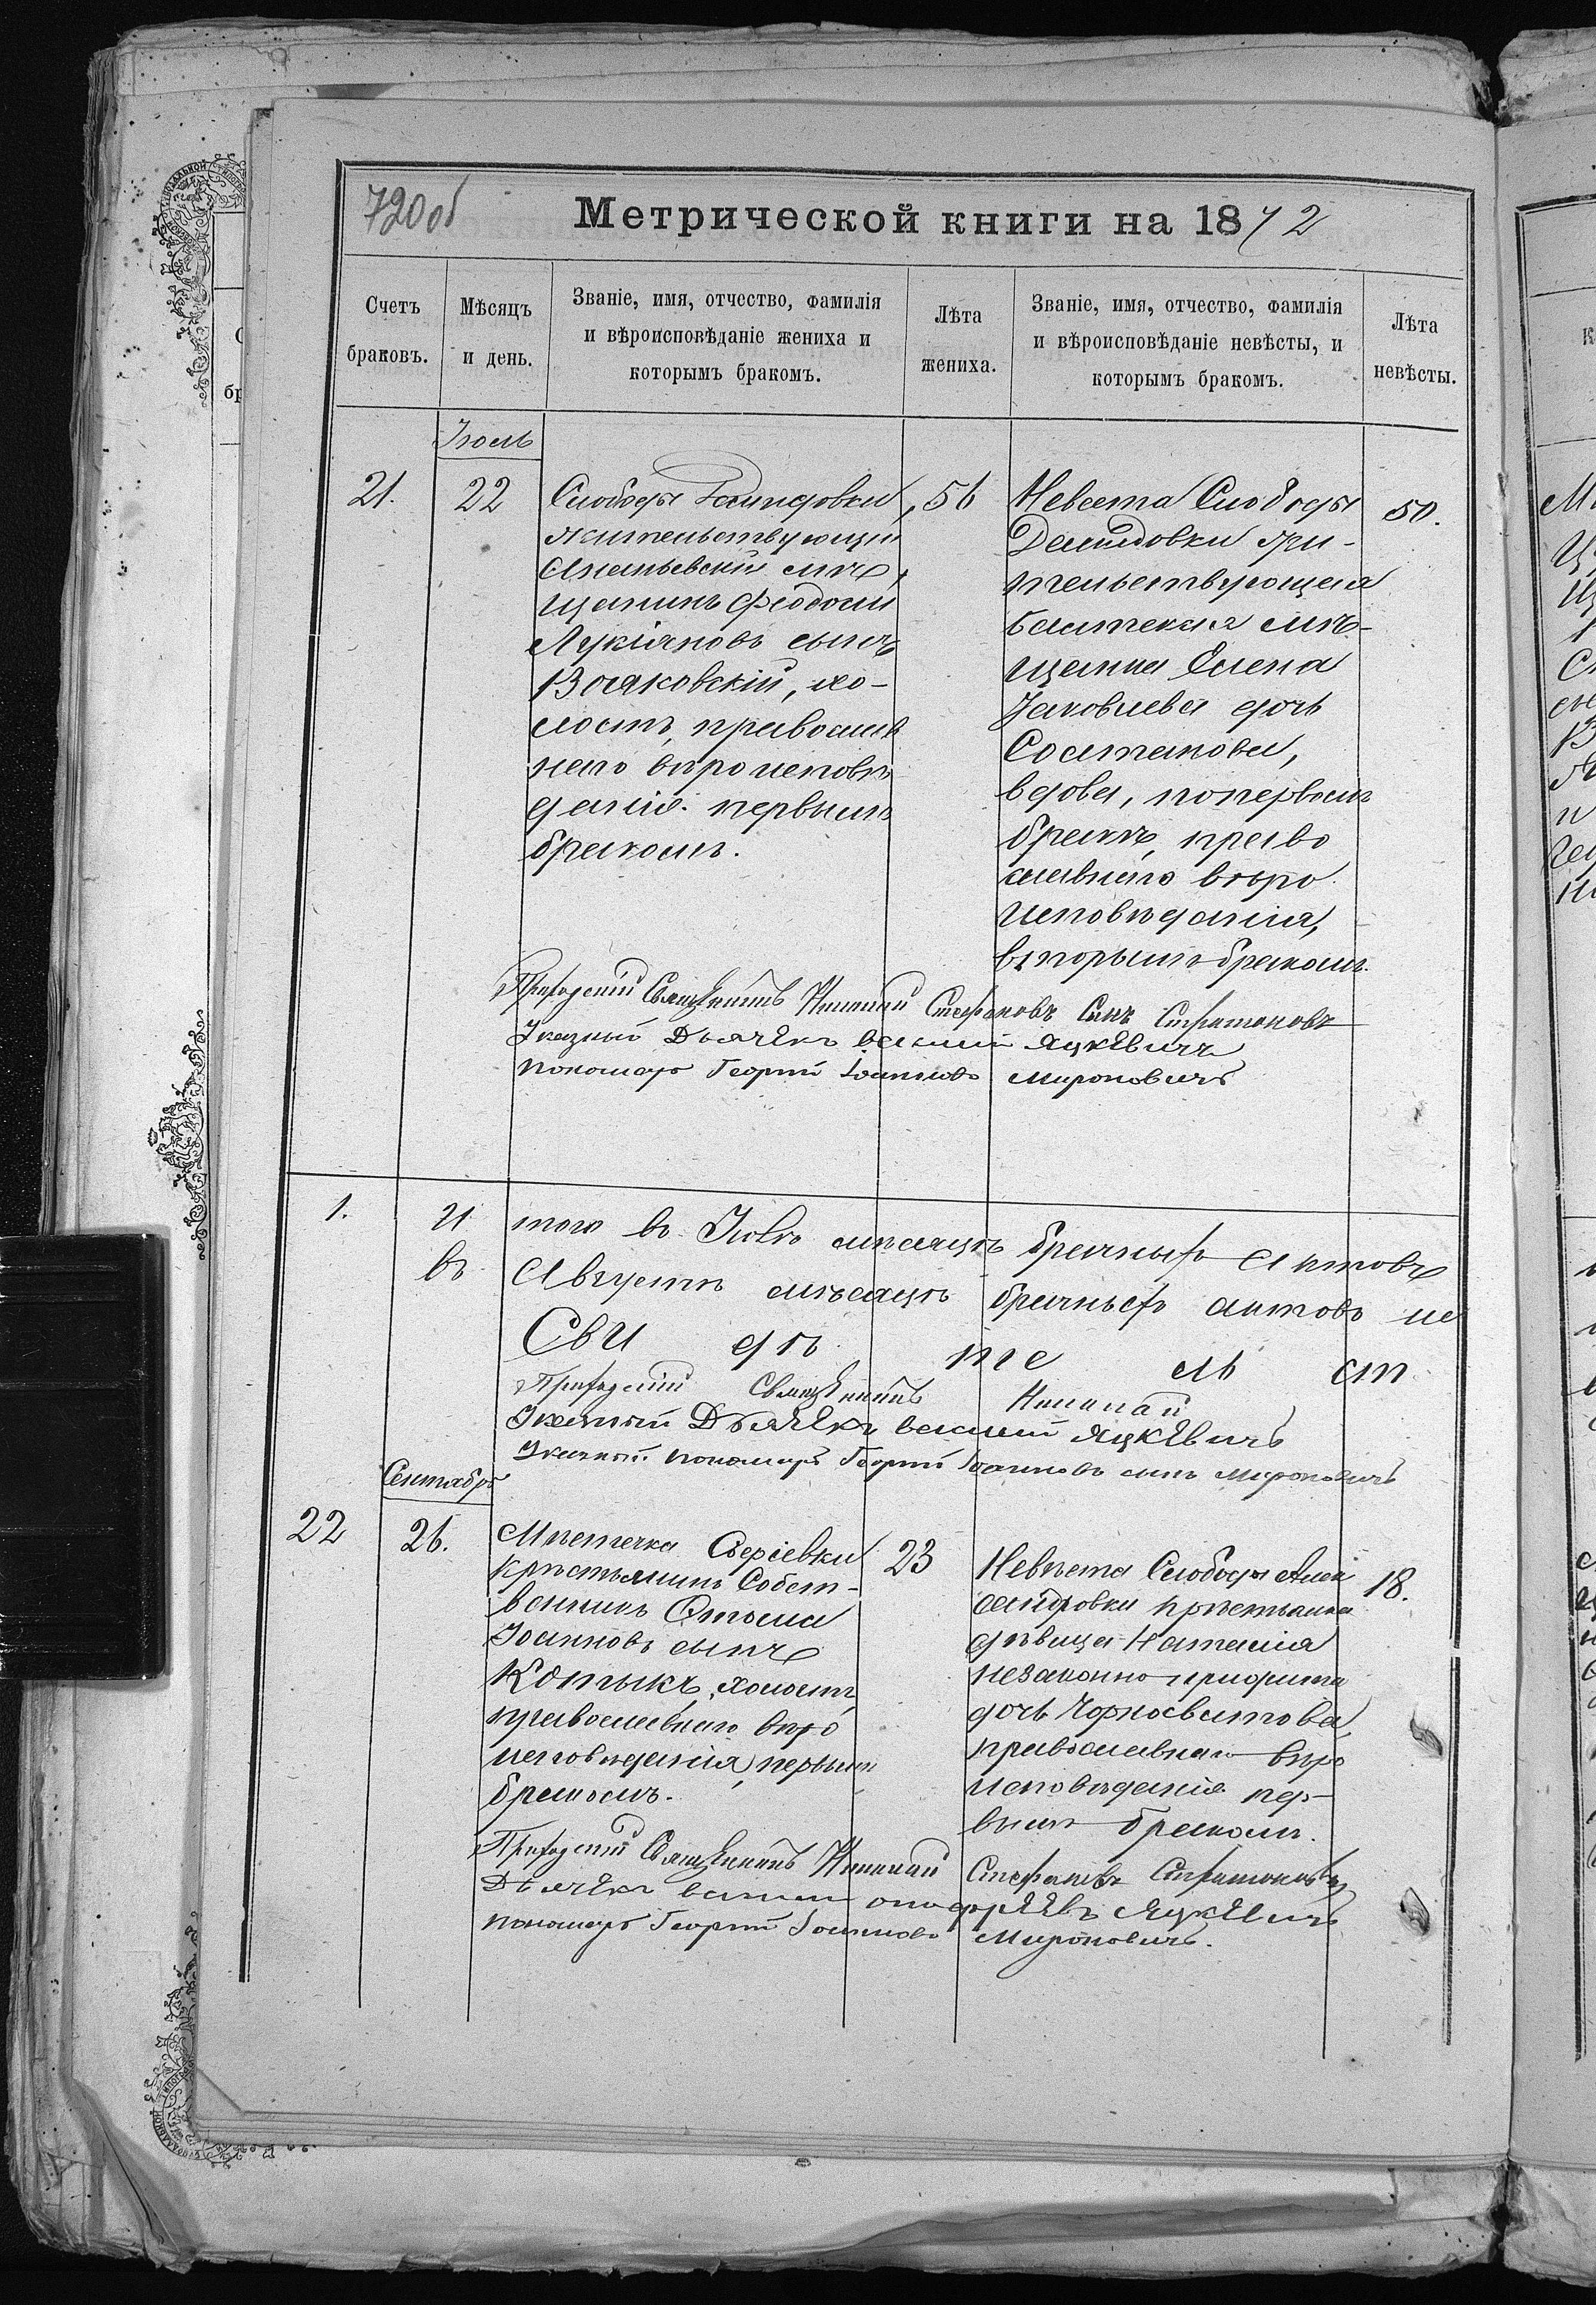 720об
Метрической книги на 1872
Счетъ браковъ.
Мѣсяцъ и день.
Званіе, имя, отчество, фамилія и вѣроисповѣданіе жениха и которымъ бракомъ.
Лѣта жениха.
Званіе, имя, отчество, фамилія и вѣроисповѣданіе невѣсты, и которымъ бракомъ.
Лѣта невѣсты.
Іюль
21.
22
Слободы
жительствующій
Ананьевскій мѣ
щанинъ Феодосій
Лукіяновъ сынъ
холостъ, православ
наго вѣроисповѣ
данія. первымъ
бракомъ.
56
Невеста Слободы
Демидовки жи-
тельствующая
Балтская мѣ-
щанка Елена
Іаковлева дочь
вдова, попервомъ
бракѣ, право
славнаго вѣро
исповѣданія,
вторымъ бракомъ.
50.
Приходскій Священникъ Николай Стефановъ Сынъ
Указный Дьячекъ Василій Яцкевичъ
Пономарь Георгій Іоанновъ Мироновичъ
1.
И того въ Іюлѣ мѣсяцѣ брачныхъ актовъ
въ Августѣ мѣсяцѣ брачныхъ актовъ не
Сви дѣ те ль ст
Приходскій Священникъ Николай
Указный Дьячекъ Василій Яцкевичъ
Указный Пономарь Георгій Іоанновъ сынъ Мироновичъ
Сентябрь
22
26.
Мѣстечка
Крестьянинъ Собст-
венникъ
Іоанновъ сынъ
холостъ,
православнаго вѣро
исповѣданія, первымъ
бракомъ.
23
Невѣста Слободы Алек
сандровки крестьянка
дѣвица Наталія
незаконно прижита
дочь Чорносвитова
православнаго вѣро
исповѣданія пер-
вымъ бракомъ.
18.
Приходскій Священникъ Николай Стефановъ
Дьячекъ Василій Онофрѣевъ Яцкевичъ
Пономарь Георгій Іоанновъ Мироновичъ.